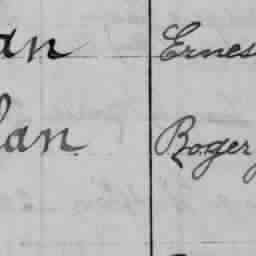 an Ernes
lan Roger